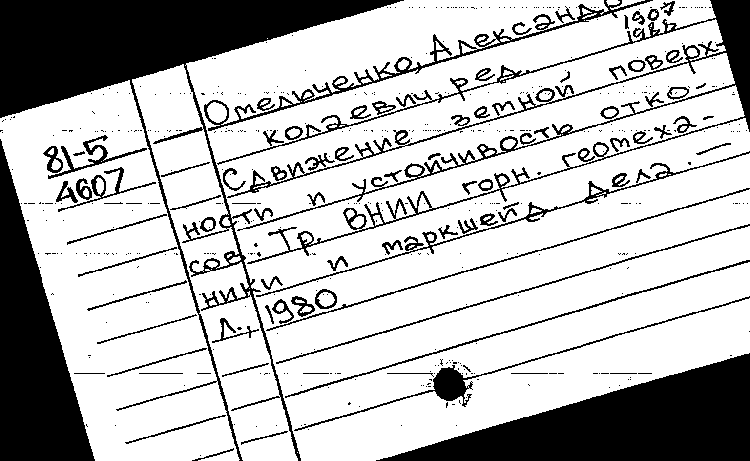 Омельченко, Александр
1907
колаевич, ред.
81-5
4607
Сдвижение земной поверх-
ности и устойчивость отко-
сов: Тр. ВНИИ горн. геомеха-
ники и маркшейд. дела. —
Л., 1980.